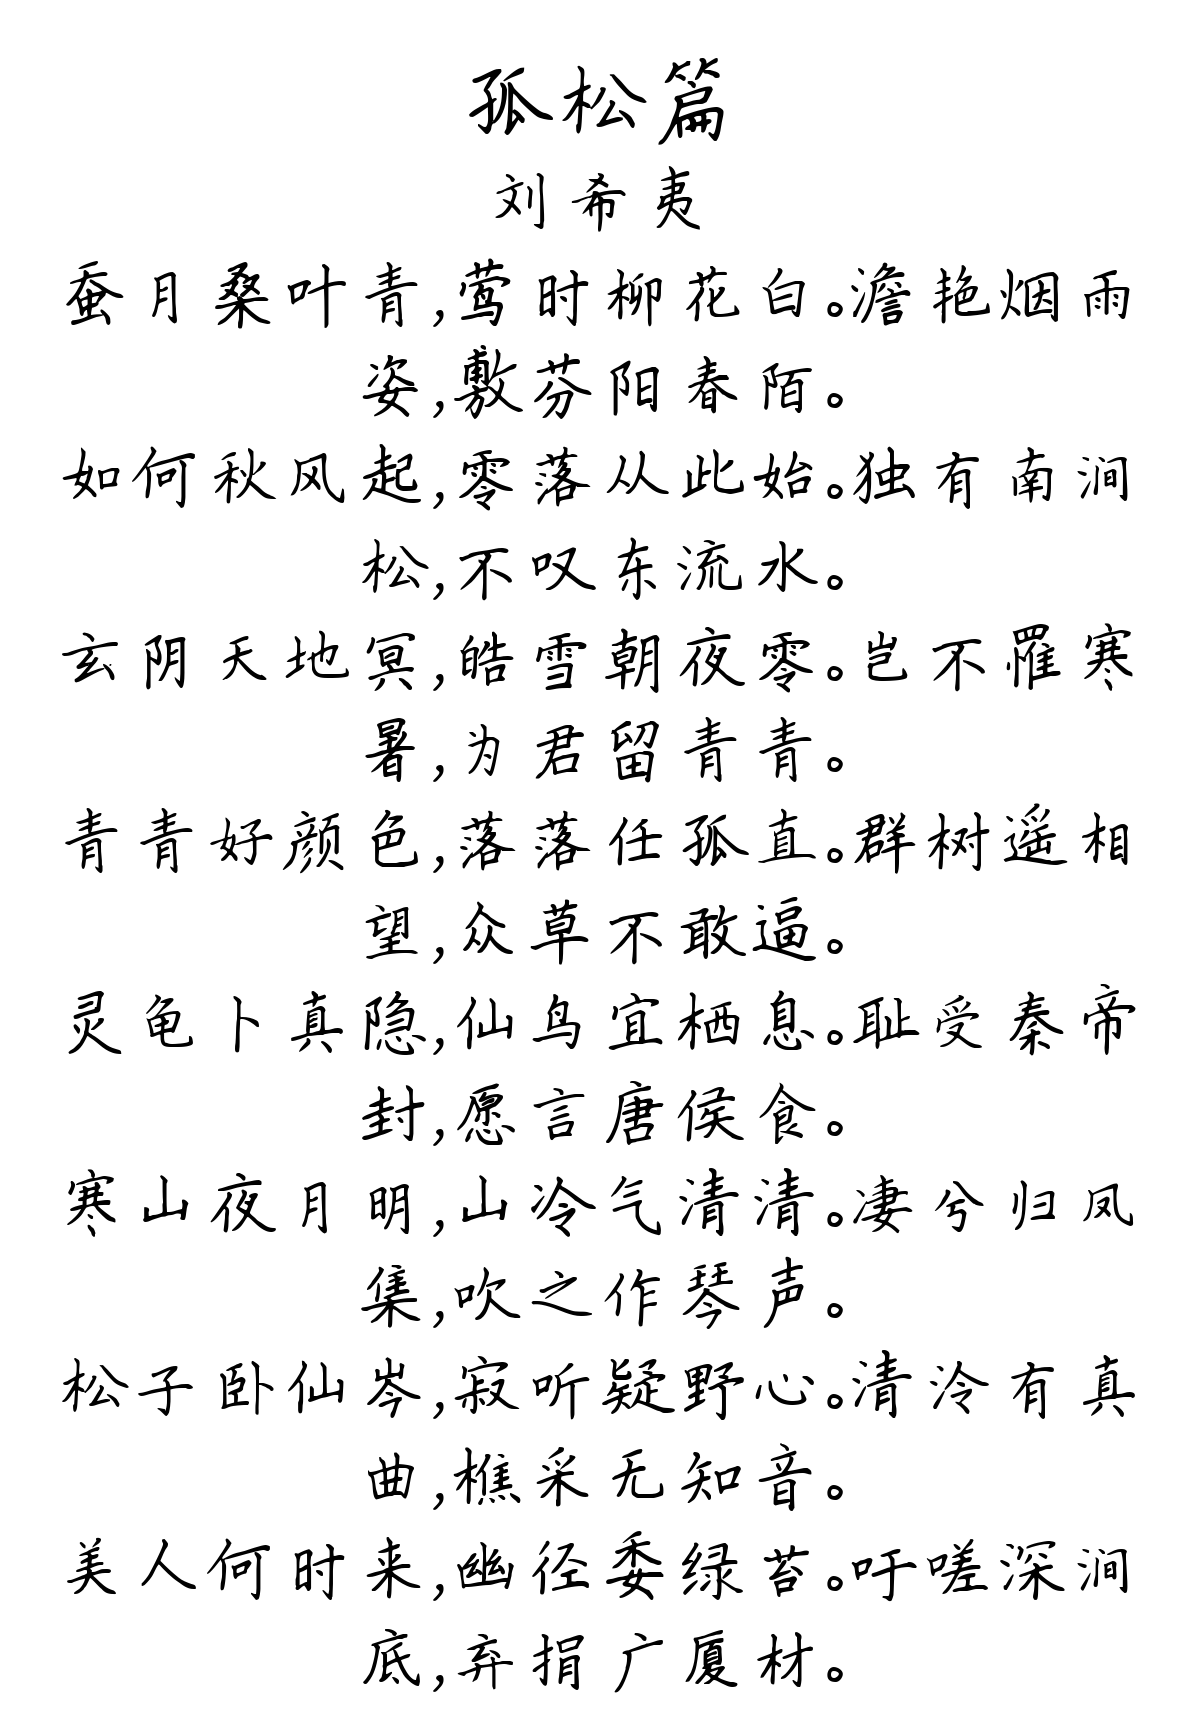 孤松篇
刘希夷
蚕月桑叶青,莺时柳花白。澹艳烟雨
姿,敷芬阳春陌。
如何秋风起,零落从此始。独有南涧
松,不叹东流水。
玄阴天地冥,皓雪朝夜零。岂不罹寒
暑,为君留青青。
青青好颜色,落落任孤直。群树遥相
望,众草不敢逼。
灵龟卜真隐,仙鸟宜栖息。耻受秦帝
封,愿言唐侯食。
寒山夜月明,山冷气清清。凄兮归凤
集,吹之作琴声。
松子卧仙岑,寂听疑野心。清泠有真
曲,樵采无知音。
美人何时来,幽径委绿苔。吁嗟深涧
底,弃捐广厦材。